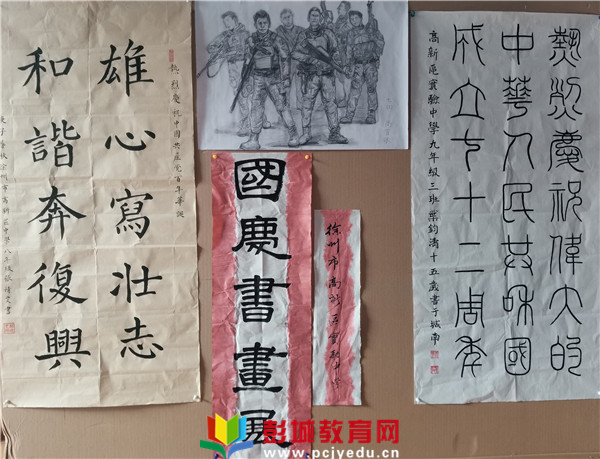 熱烈慶祝中国共產黨百年華誕
雄心寫壯志
和諧奔復興
國慶書畫展
徐州市高新區實驗中學
熱烈慶祝偉大的
中華人民共和國
成立七十二周年
高新區實驗中學九年級三班葉鈞濤十五歲書于城南
彭城教育网
www.pcjyedu.cn